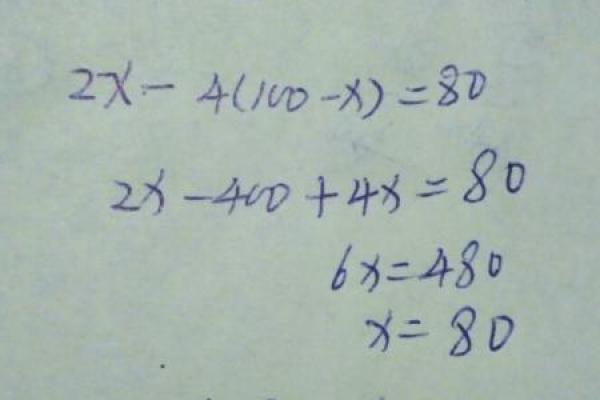 2x - 4(100 - x) = 80
2x - 400 + 4x = 80
6x = 480
x = 80